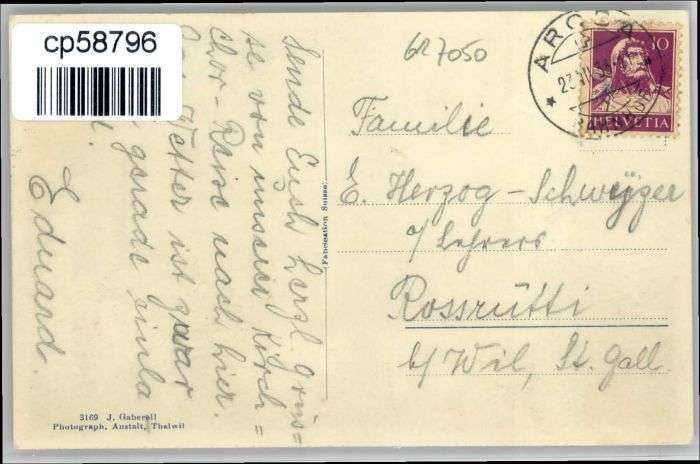 cp58796
GR7050
AROSA
23.VII.
10
HELVETIA
Familie
E. Herzog-Schwejzer
Lehrers
Rossrütti
b/ Wil, St. Gall.
Sende Euch herzl. Grüs=
se von unserer Kirch=
chor-Reise nach hier.
Wetter ist zwar
gerade einla
Eduard.
(Fabrication Suisse)
3169 J. Gaberell
Photograph. Anstalt, Thalwil